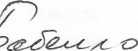 Бабенко